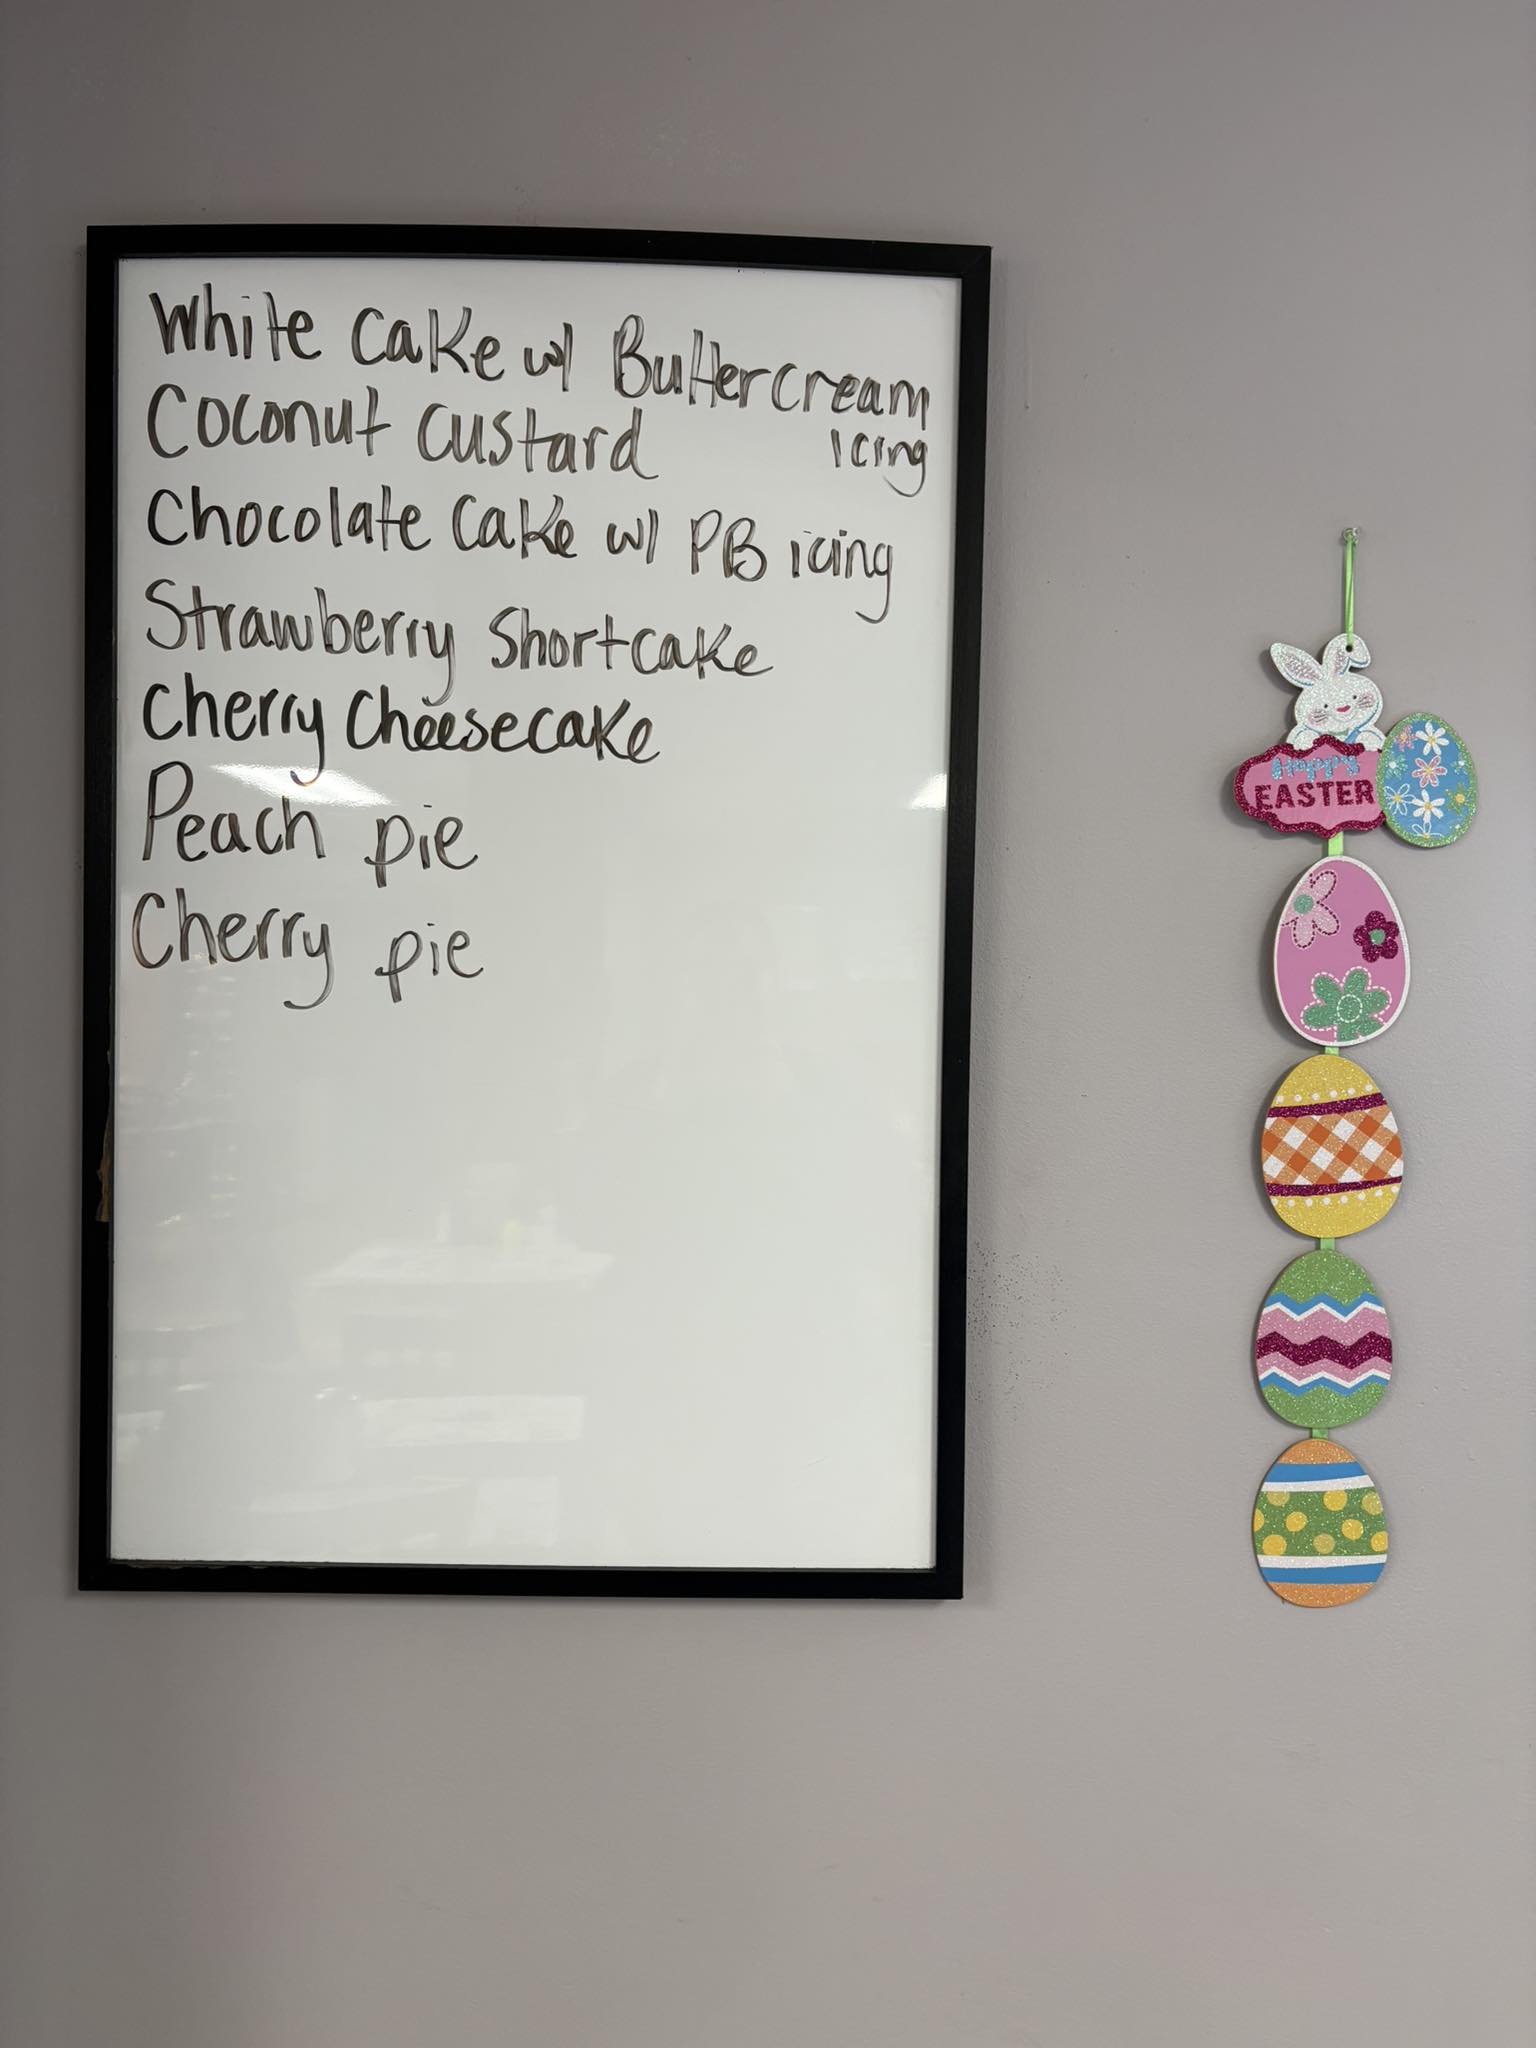 White Cake w/ Buttercream
icing
Coconut Custard
Chocolate Cake w/ PB icing
Strawberry Shortcake
Cherry Cheesecake
Peach pie
Cherry pie
Happy
EASTER